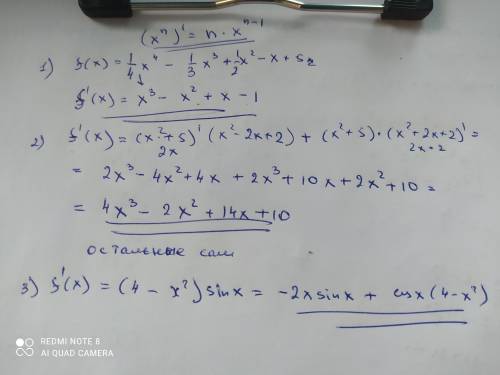 (xⁿ)' = n · xⁿ⁻¹
1) f(x) = 1/4 x⁴ - 1/3 x³ + 1/2 x² - x + 52
f'(x) = x³ - x² + x - 1
2) f'(x) = (x² + 5)' (x² - 2x + 2) + (x² + 5) · (x² + 2x + 2)' =
2x 2x + 2
= 2x³ - 4x² + 4x + 2x³ + 10x + 2x² + 10 =
= 4x³ - 2x² + 14x + 10
остальные сам
3) f'(x) = (4 - x²) sin x = -2x sin x + cos x (4 - x²)
REDMI NOTE 8
AI QUAD CAMERA